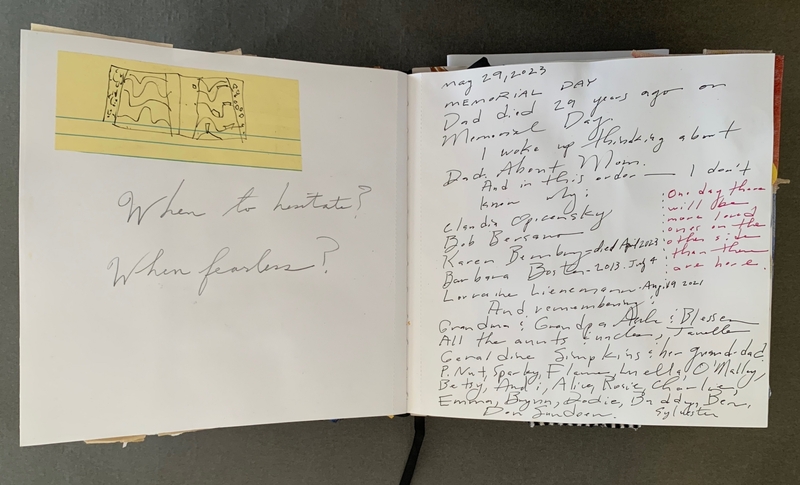 When to hesitate?
When fearless?
may 29, 2023
MEMORIAL DAY
Dad died 29 years ago on
Memorial Day.
I woke up thinking about
Dad. About Mom.
And in this order — I don't
know why:
Claudia
Bob
Karen died April 2023
Barbara Boster - 2013. July 4
Lorraine Lienemann. Aug. 19 2021
And remembering:
Grandma & Grandpa & Blessen
All the aunts & uncles; Janelle
Geraldine Simpkins & her granddad?
P. Nut, Sparky, Flame, Luella, O'Malley,
Betsy, Andi, Alive, Rosie, Charlie,
Emma, Brynn, Dodie, Buddy, Ben,
Sylvester
Don
One day there
will be
more loved
ones on the
other side
than them
are here.